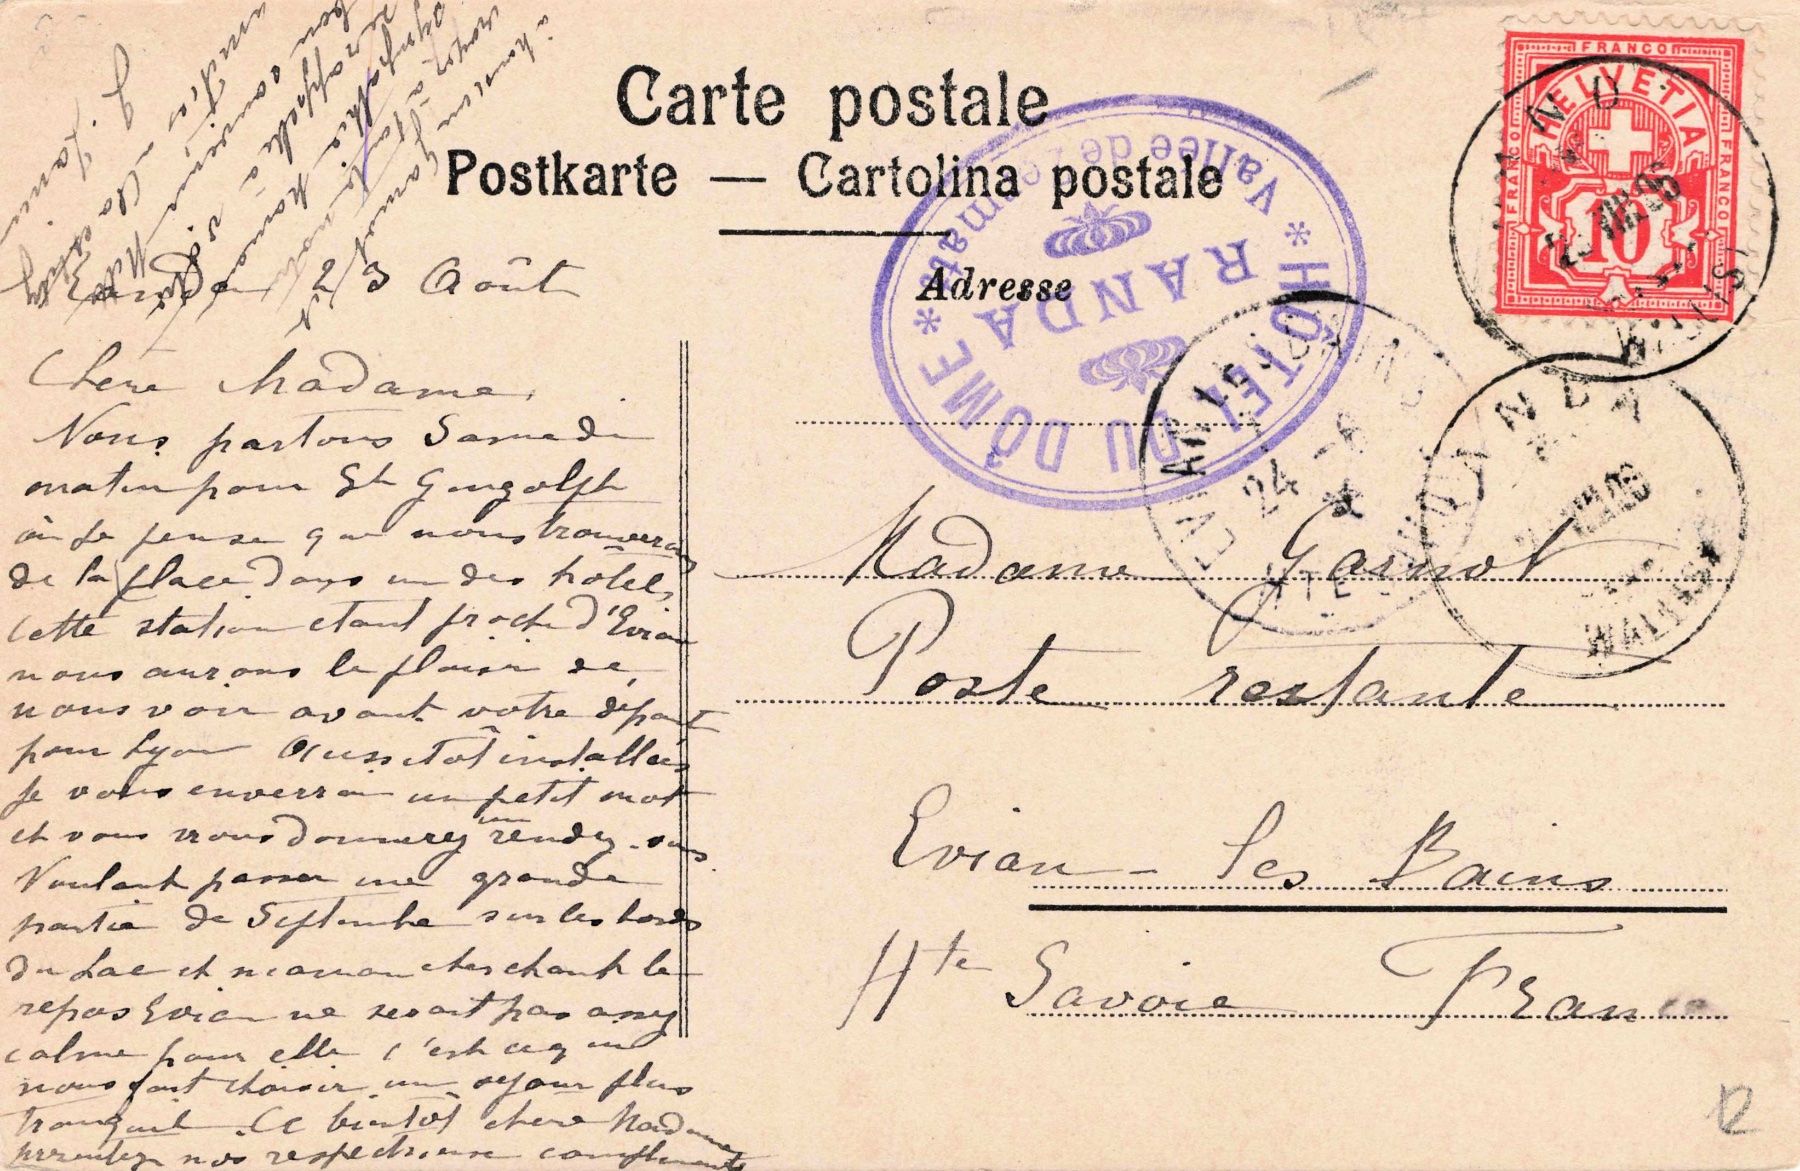 Carte postale
Postkarte — Cartolina postale
Adresse
FRANCO
HELVETIA
FRANCO
FRANCO
10
* HÔTEL DU DÔME *
RANDA
Vallée de Zermatt
RANDA
23 VIII 05
(WALLIS)
RANDA
VIII 05
(WALLIS)
EVIAN-LES-BAINS
24 -8
HTE SAVOIE
Randa 23 Août
Chère Madame,
Nous partons Samedi
matin pour St Gingolph
où je pense que nous trouverons
de la place dans un des hôtels,
cette station étant proche d'Evian
nous aurons le plaisir de
nous voir avant votre départ
pour Lyon Aussitôt installées
je vous enverrai un petit mot
et vous nous donnerez un rendez-vous
Voulant passer une grande
partie de Septembre sur les bords
du Lac et maman cherchant le
repos Evian ne serait pas assez
calme pour elle c'est ce qui
nous fait choisir un séjour plus
tranquil. A bientôt chère Madame
présentez nos respectueux compliments
à Monsieur Garnot
sympathie
bon souvenir
amitiés
Madame Garnot
Poste restante
Evian-les Bains
Hte Savoie France